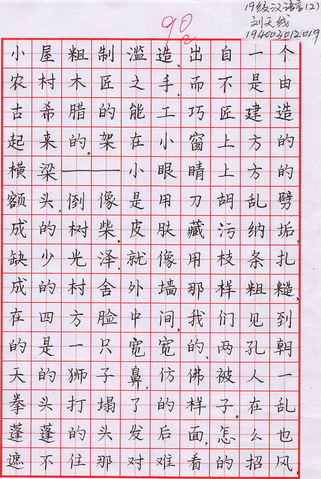 90
19级汉语言(2)
刘天线
194003012019
小屋粗制滥造,出自一个
农村木匠之手,而不是由
古希腊的能工巧匠建造
起来的。架在小窗上方的
横梁——小眼睛上方的
额头,倒像是用刀胡乱劈
成的树柴。皮肤藏污纳垢,
缺少光泽,就像用枝条扎
成的村舍外墙那样粗糙。
在四方脸中间,我们见到
的是一只宽宽的、两孔朝
天的狮子鼻,仿佛被人一
拳头打塌了的样子。在乱
蓬蓬的头发后面,怎么也
遮不住那对难看的招风